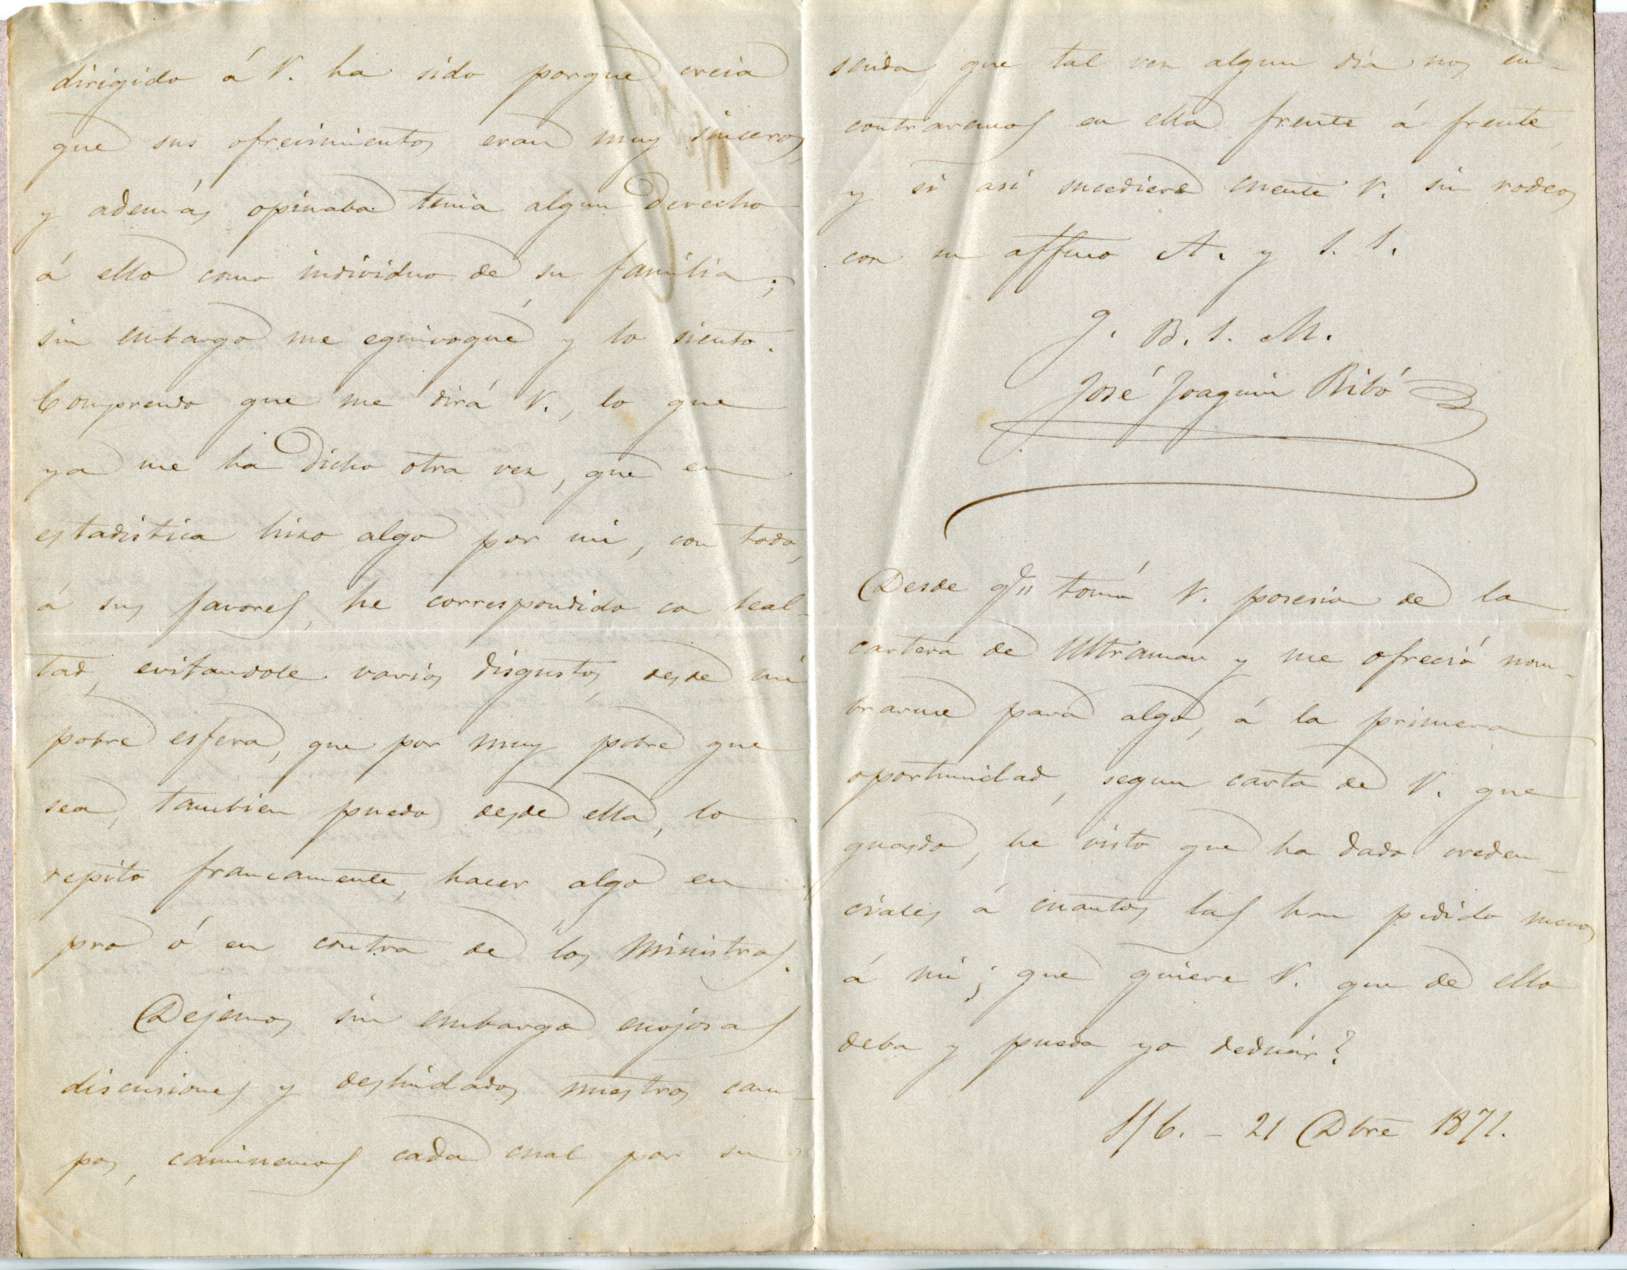 dirigido á V. ha sido porque creia
que sus ofrecimientos eran muy sinceros,
y además opinaba tenia algun derecho
á ello como individuo de su familia;
sin embargo me equivoqué y lo siento.
Comprendo que me dirá V., lo que
ya me ha dicho otra vez, que en
estadistica hizo algo por mi, con todo,
á sus favores, he correspondido con leal-
tad, evitandole varios disgustos, desde mi
pobre esfera, que por muy pobre que
sea, tambien puedo desde ella, lo
repito francamente, hacer algo en
pro ó en contra de los Ministros.
Dejemos sin embargo enojosas
discusiones y deslindados nuestros cam-
pos, caminemos cada cual por su
senda que tal vez algun dia nos en-
contraremos en ella frente á frente,
y si asi sucediere cuente V. sin rodeos
con su affmo A. y S. S.
Q. B. S. M.
José Joaquin Ribó
Desde qe tomó V. posesion de la
cartera de Ultramar y me ofreció nom-
brarme para algo, á la primera
oportunidad, segun carta de V. que
guardo, he visto que ha dado creden-
ciales á cuantos las han pedido menos
á mi; que quiere V. que de ello
deba y pueda yo deducir?
S/c. - 21 Dbre 1871.